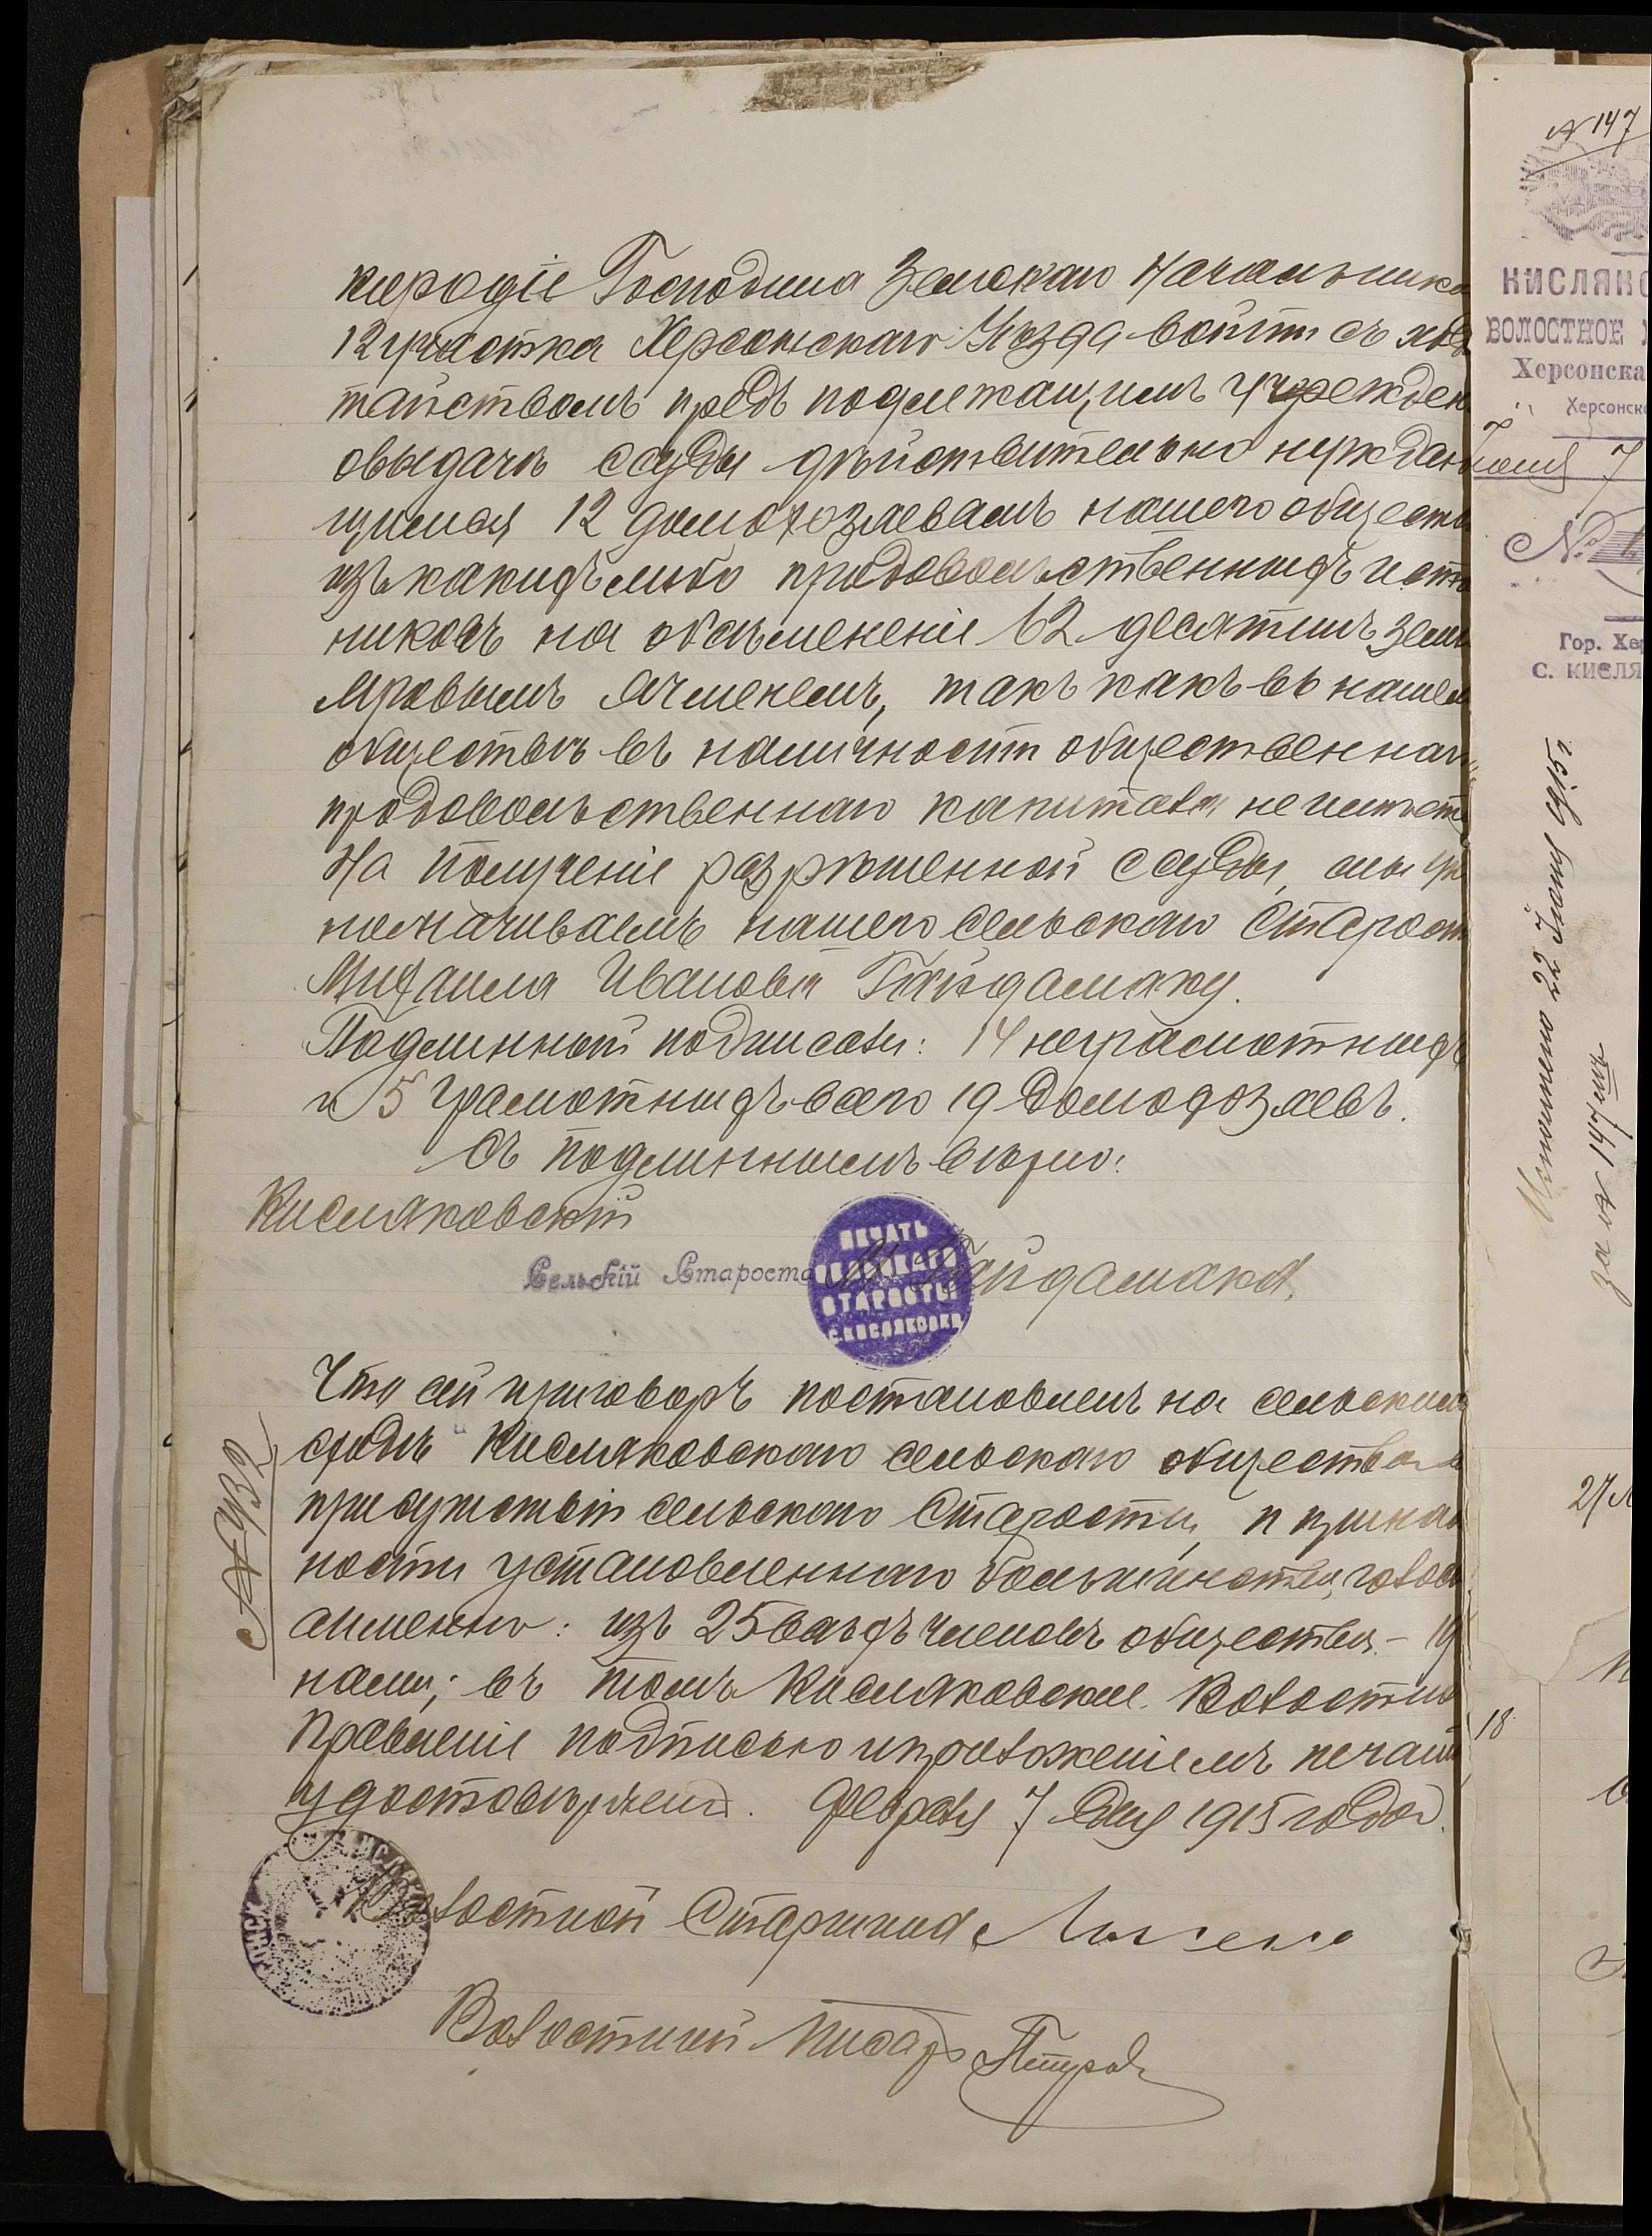 кородіе Господина Земскаго Начальника
12 участка Херсонскаго Уѣзда войти съ хода
тайствомъ предъ подлежащимъ учрежден
о выдачѣ ссуды дѣйствительно нуждаю
щимся 12 домохозяевамъ нашего обществ
изъ какихъ либо продовольственныхъ источ
никовъ на обсѣмененіе 62 десятинъ земл
яровымъ ячменемъ, такъ какъ въ нашем
обществѣ въ наличности общественнаго
продовольственнаго капитала не имѣет
На полученіе разрѣшенной ссуды, мы у
полномачиваемъ нашего сельскаго Старост
Михаила Иванова Гайдамаку.
Подлинный подписали: 14 неграмотныхъ
и 5 грамотныхъ всего 19 домохозяевъ.
Съ подлиннымъ вѣрно:
Кисляковскій
Сельскій Староста М. Гайдамака.
ПЕЧАТЬ
СЕЛЬСКАГО
СТАРОСТЫ
С. КИСЛЯКОВКИ
Что сей приговоръ постановленъ на сельском
сходѣ Кисляковскаго сельскаго общества в
присутствіи сельскаго Старосты, и при нал
ности установленнаго большинства, голосо
а именно: изъ 25 всѣхъ членовъ общества – 19
нами; въ томъ Кисляковское Волостно
Правленіе подписью и приложеніемъ печати
удостовѣряетъ. Февраля 7 дня 1915 года.
№ 932
Волостной Старшина
Волостной Писарь Петровъ
№ 147
КИСЛЯКО
ВОЛОСТНОЕ
Херсонска
Херсонск
7
№
Гор. Хер
с. КИСЛЯ
Исполнено 22 Іюня 1915 г.
за № 147
18